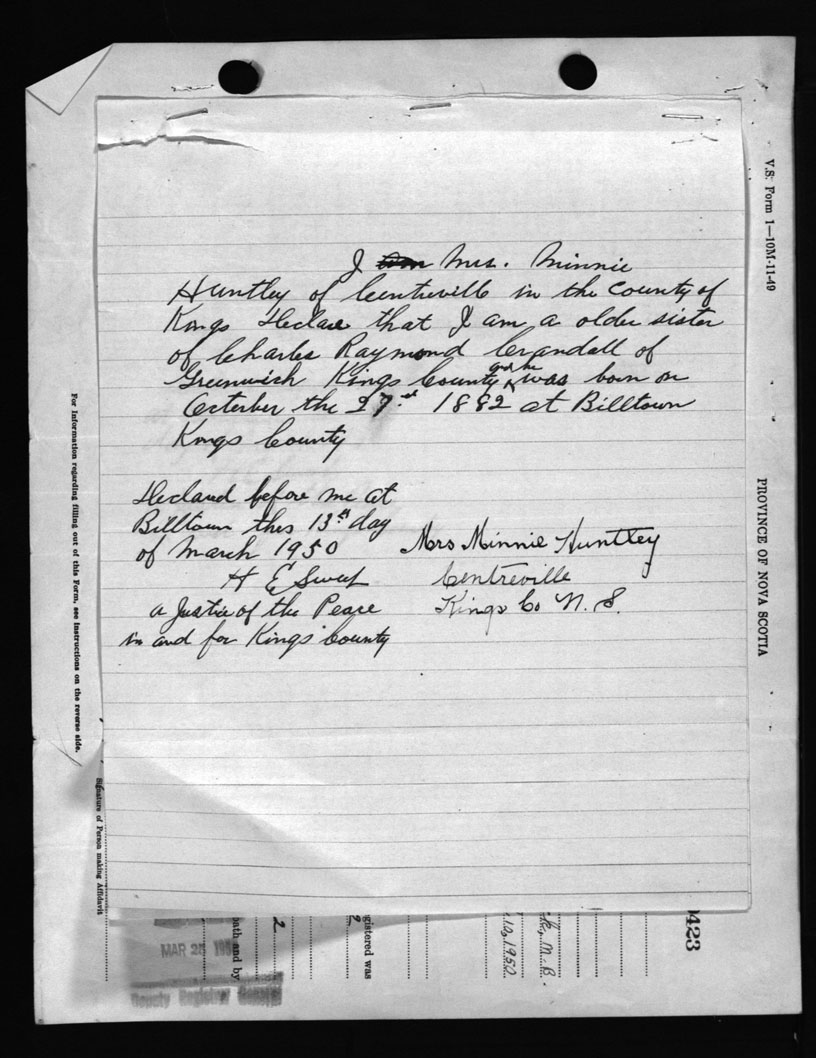 I Mrs. Minnie
Huntley of Centreville in the County of
Kings Declare that I am a older sister
of Charles Raymond Crandall of
Greenwich Kings County and he was born on
Octerber the 27st 1882 at Billtown
Kings County
Declard before me at
Billtown this 13th day
of March 1950
H E Sweet
a Justice of the Peace
in and for Kings County
Mrs Minnie Huntley
Centreville
Kings Co N. S.
V.S. Form 1—10M-11-49
PROVINCE OF NOVA SCOTIA
For Information regarding filling out of this Form, see Instructions on the reverse side.
Signature of Person making Affidavit
423
M.B.
10, 1950
gistered was
2
oath and by
MAR 25 195
Deputy Registrar General